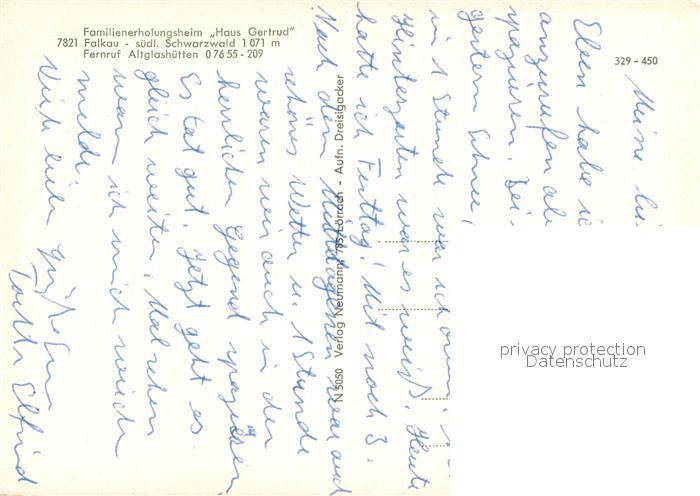 Familienerholungsheim „Haus Gertrud"
7821 Falkau - südl. Schwarzwald 1071 m
Fernruf Altglashütten 0 76 55 - 209
329 - 450
N 5050 Verlag Neumann, 785 Lörrach - Aufn. Dreisigacker
Meine
Eben habe ic
anzurufen ab
spazieren. Bei
gestern Schnee,
in 1 Stunde war ich
Hinterzarten war es weiß. Heute
hatte ich Freitag! Mit noch 3.
Nach dem Mittagessen war auch
schönes Wetter u. 1 Stunde
waren wir auch in der
herrlichen Gegend spazieren
Es tat gut. Jetzt geht es
gleich weiter. Mal sehen
wann ich mich wieder
melde.
Viele liebe Grüße Eure
Tochter Elfried
privacy protection
Datenschutz